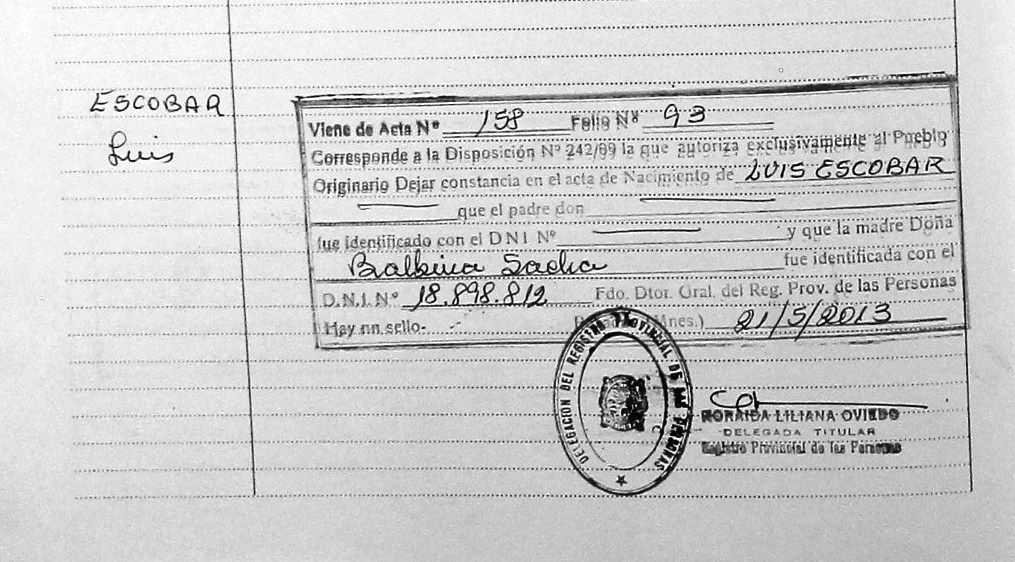 ESCOBAR
Luis
Viene de Acta Nº 158 Folio Nº 93
Corresponde a la Disposición Nº 242/99 la que autoriza exclusivamente al Pueblo
Originario Dejar constancia en el acta de Nacimiento de LUIS ESCOBAR
que el padre don
fue identificado con el DNI Nº y que la madre Doña
Balbina
fue identificada con el
D.N.I. Nº 18.898.812 Fdo. Dtor. Gral. del Reg. Prov. de las Personas
Hay un sello- Mnes.) 21/5/2013
DELEGACION DEL REGISTRO PROVINCIAL DE LAS PERSONAS
NORAIDA LILIANA OVIEDO
DELEGADA TITULAR
Registro Provincial de las Personas